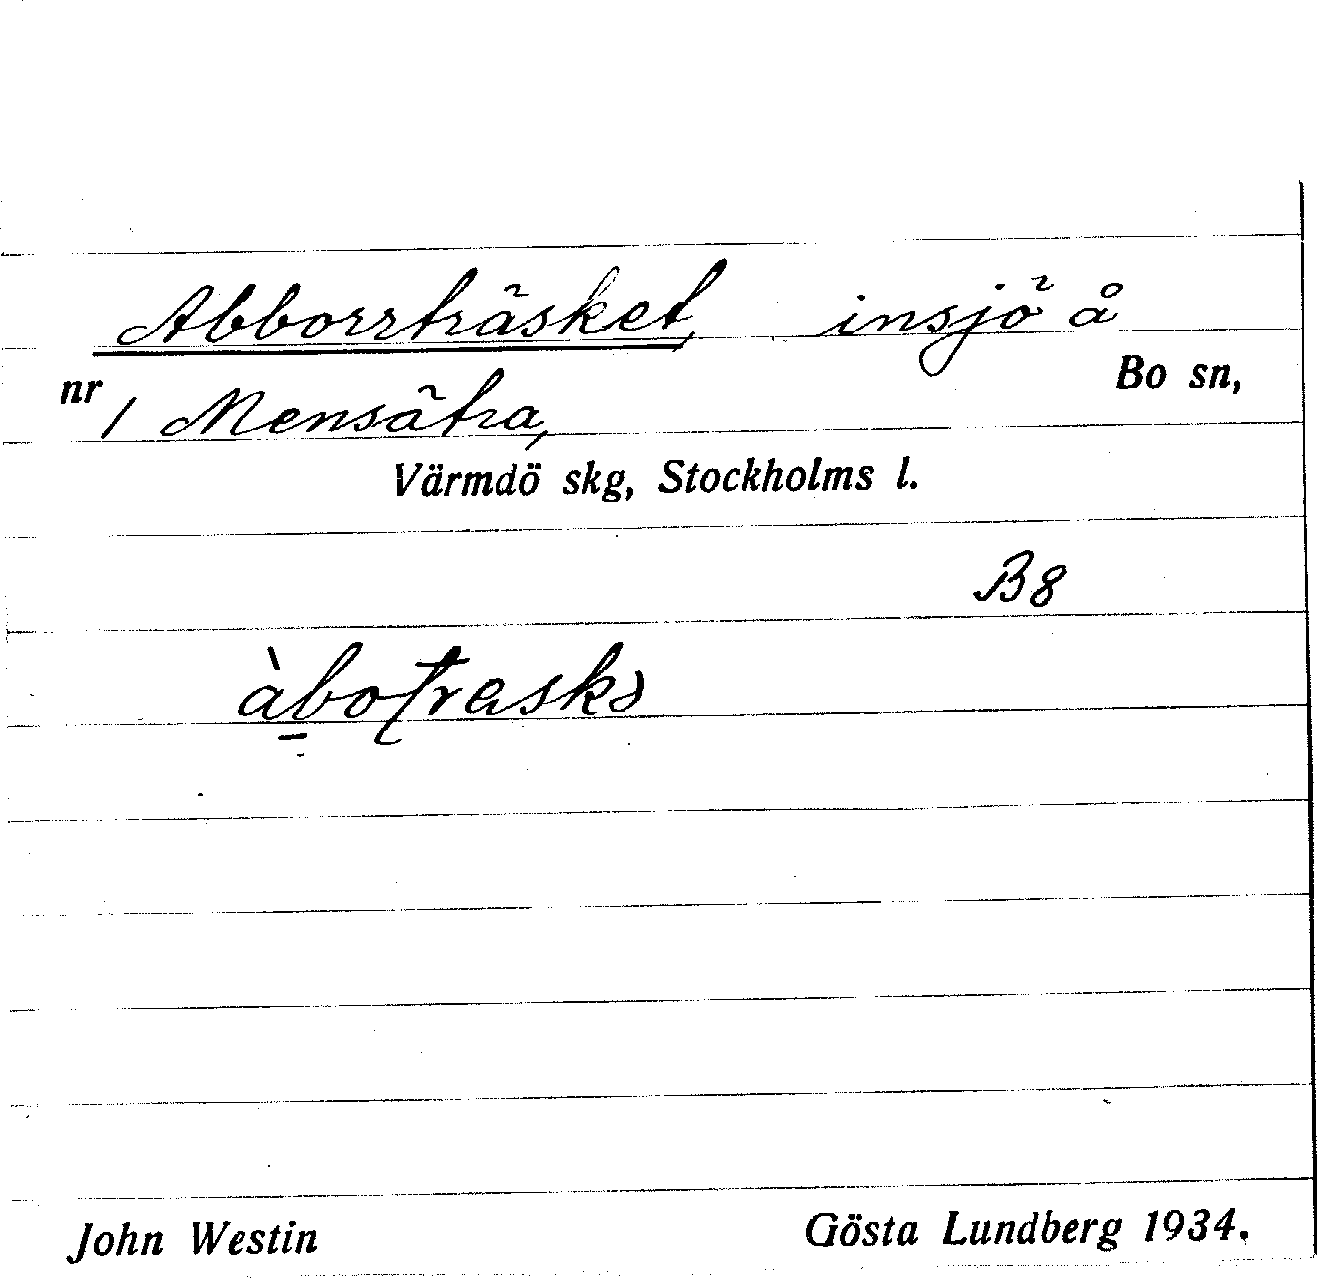 Abborrträsket, insjö å
Bo sn,
nr 1 Mensätra,
Värmdö skg, Stockholms l.
B8
àbotrask
John Westin
Gösta Lundberg 1934.